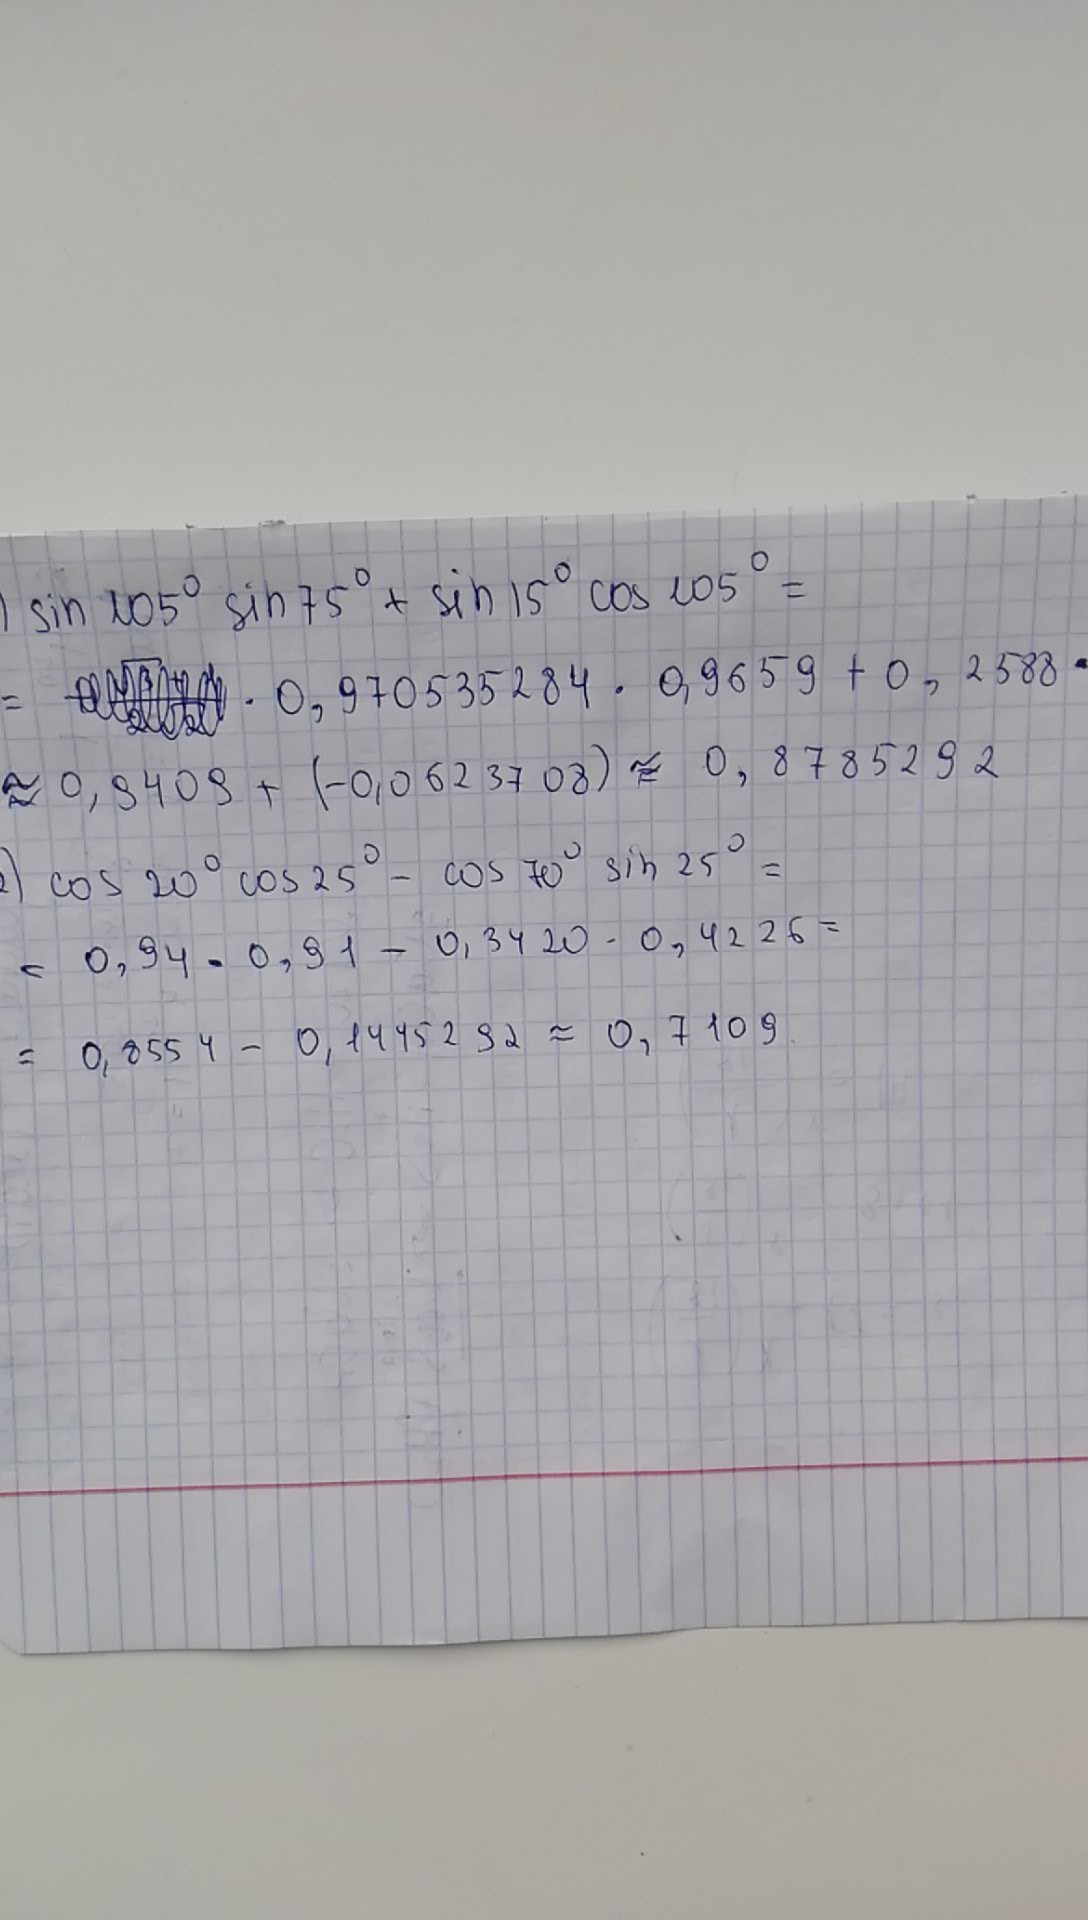 ) sin 105° sin 75° + sin 15° cos 105° =
= · 0,970535284 · 0,9659 + 0,2588 ·
≈ 0,9409 + (-0,0623708) ≈ 0,8785292
2) cos 20° cos 25° - cos 70° sin 25° =
= 0,94 · 0,91 - 0,3420 · 0,4226 =
= 0,8554 - 0,1445292 ≈ 0,7109